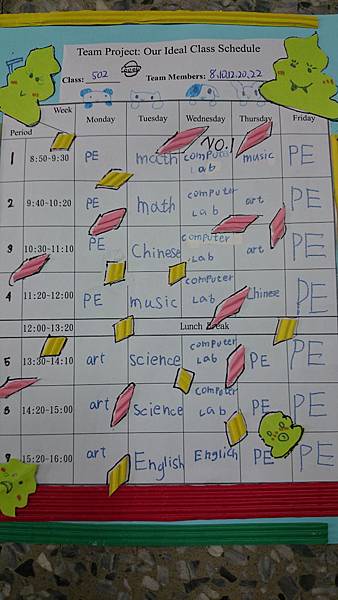 Team Project: Our Ideal Class Schedule
Class: 502 Team Members: 8.10.12.20.22
Week
Period Monday Tuesday Wednesday Thursday Friday
NO.1
1 8:50-9:30 PE math computer Lab music PE
2 9:40-10:20 PE math computer Lab art PE
3 10:30-11:10 PE Chinese computer Lab art PE
4 11:20-12:00 PE music computer Lab Chinese PE
12:00-13:20 Lunch Break
5 13:30-14:10 art science computer Lab PE PE
6 14:20-15:00 art science computer Lab PE PE
15:20-16:00 art English English PE PE